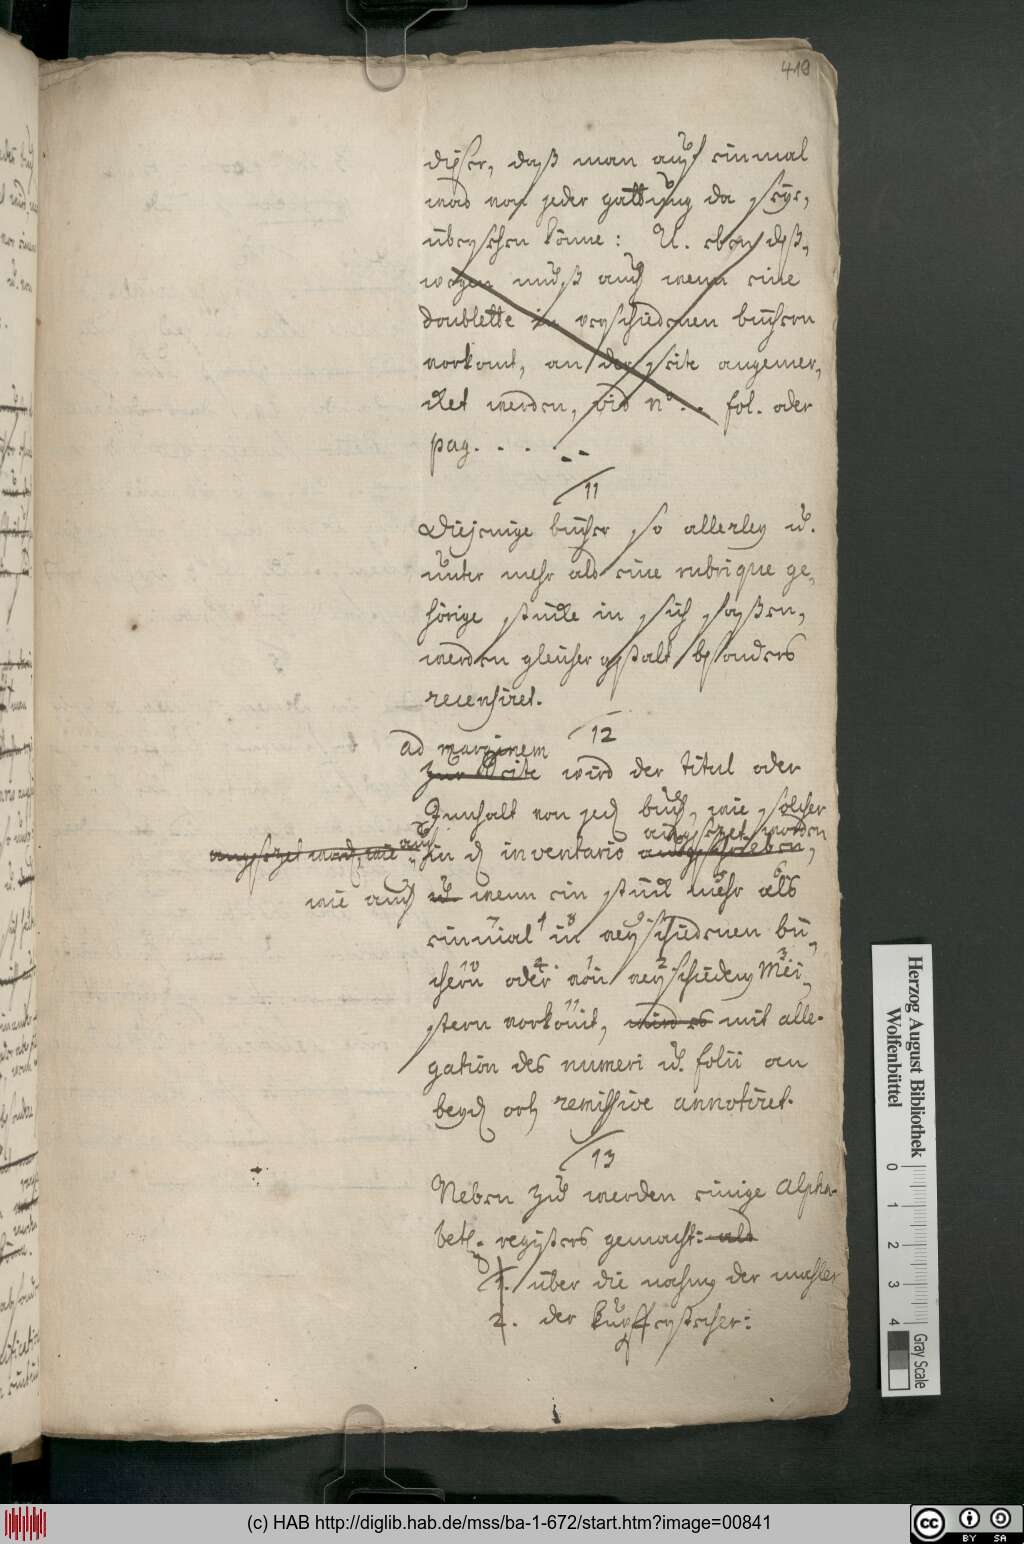 419
dieser, daß man auf einmal
was von jeder gattung da seye,
übersehen könne: U. eben deß,
wegen muß auch wenn eine
doublette in verschiedenen büchern
vorkomt, an der seite angemer,
cket werden, vid N° . . fol. oder
pag. . . .
11
Diejenige bücher so allerley u.
unter mehr als eine rubrique ge,
hörige stücke in sich faßen,
werden gleicher gestalt besonders
recensiret.
12
ad marginem
zur Seite wird der titul oder
Innhalt von jed buch, wie solcher
angesezet worden
angesezet word, wie auch
in d inventario ausgeschrieben,
wie auch u. wenn ein stück mehr als
einmal in verschiedenen bü,
chern oder von verschieden Mei,
stern vorkomt, wird es mit alle-
gation des numeri u. folii an
beyd ort remissive annotiret.
13
Neben zu werden einige Alpha-
bet. registers gemacht: als
1. über die nahmen der mahler
2. der Kupfferstecher:
Herzog August Bibliothek
Wolfenbüttel
0 1 2 3 4
Gray Scale
(c) HAB http://diglib.hab.de/mss/ba-1-672/start.htm?image=00841
cc BY SA